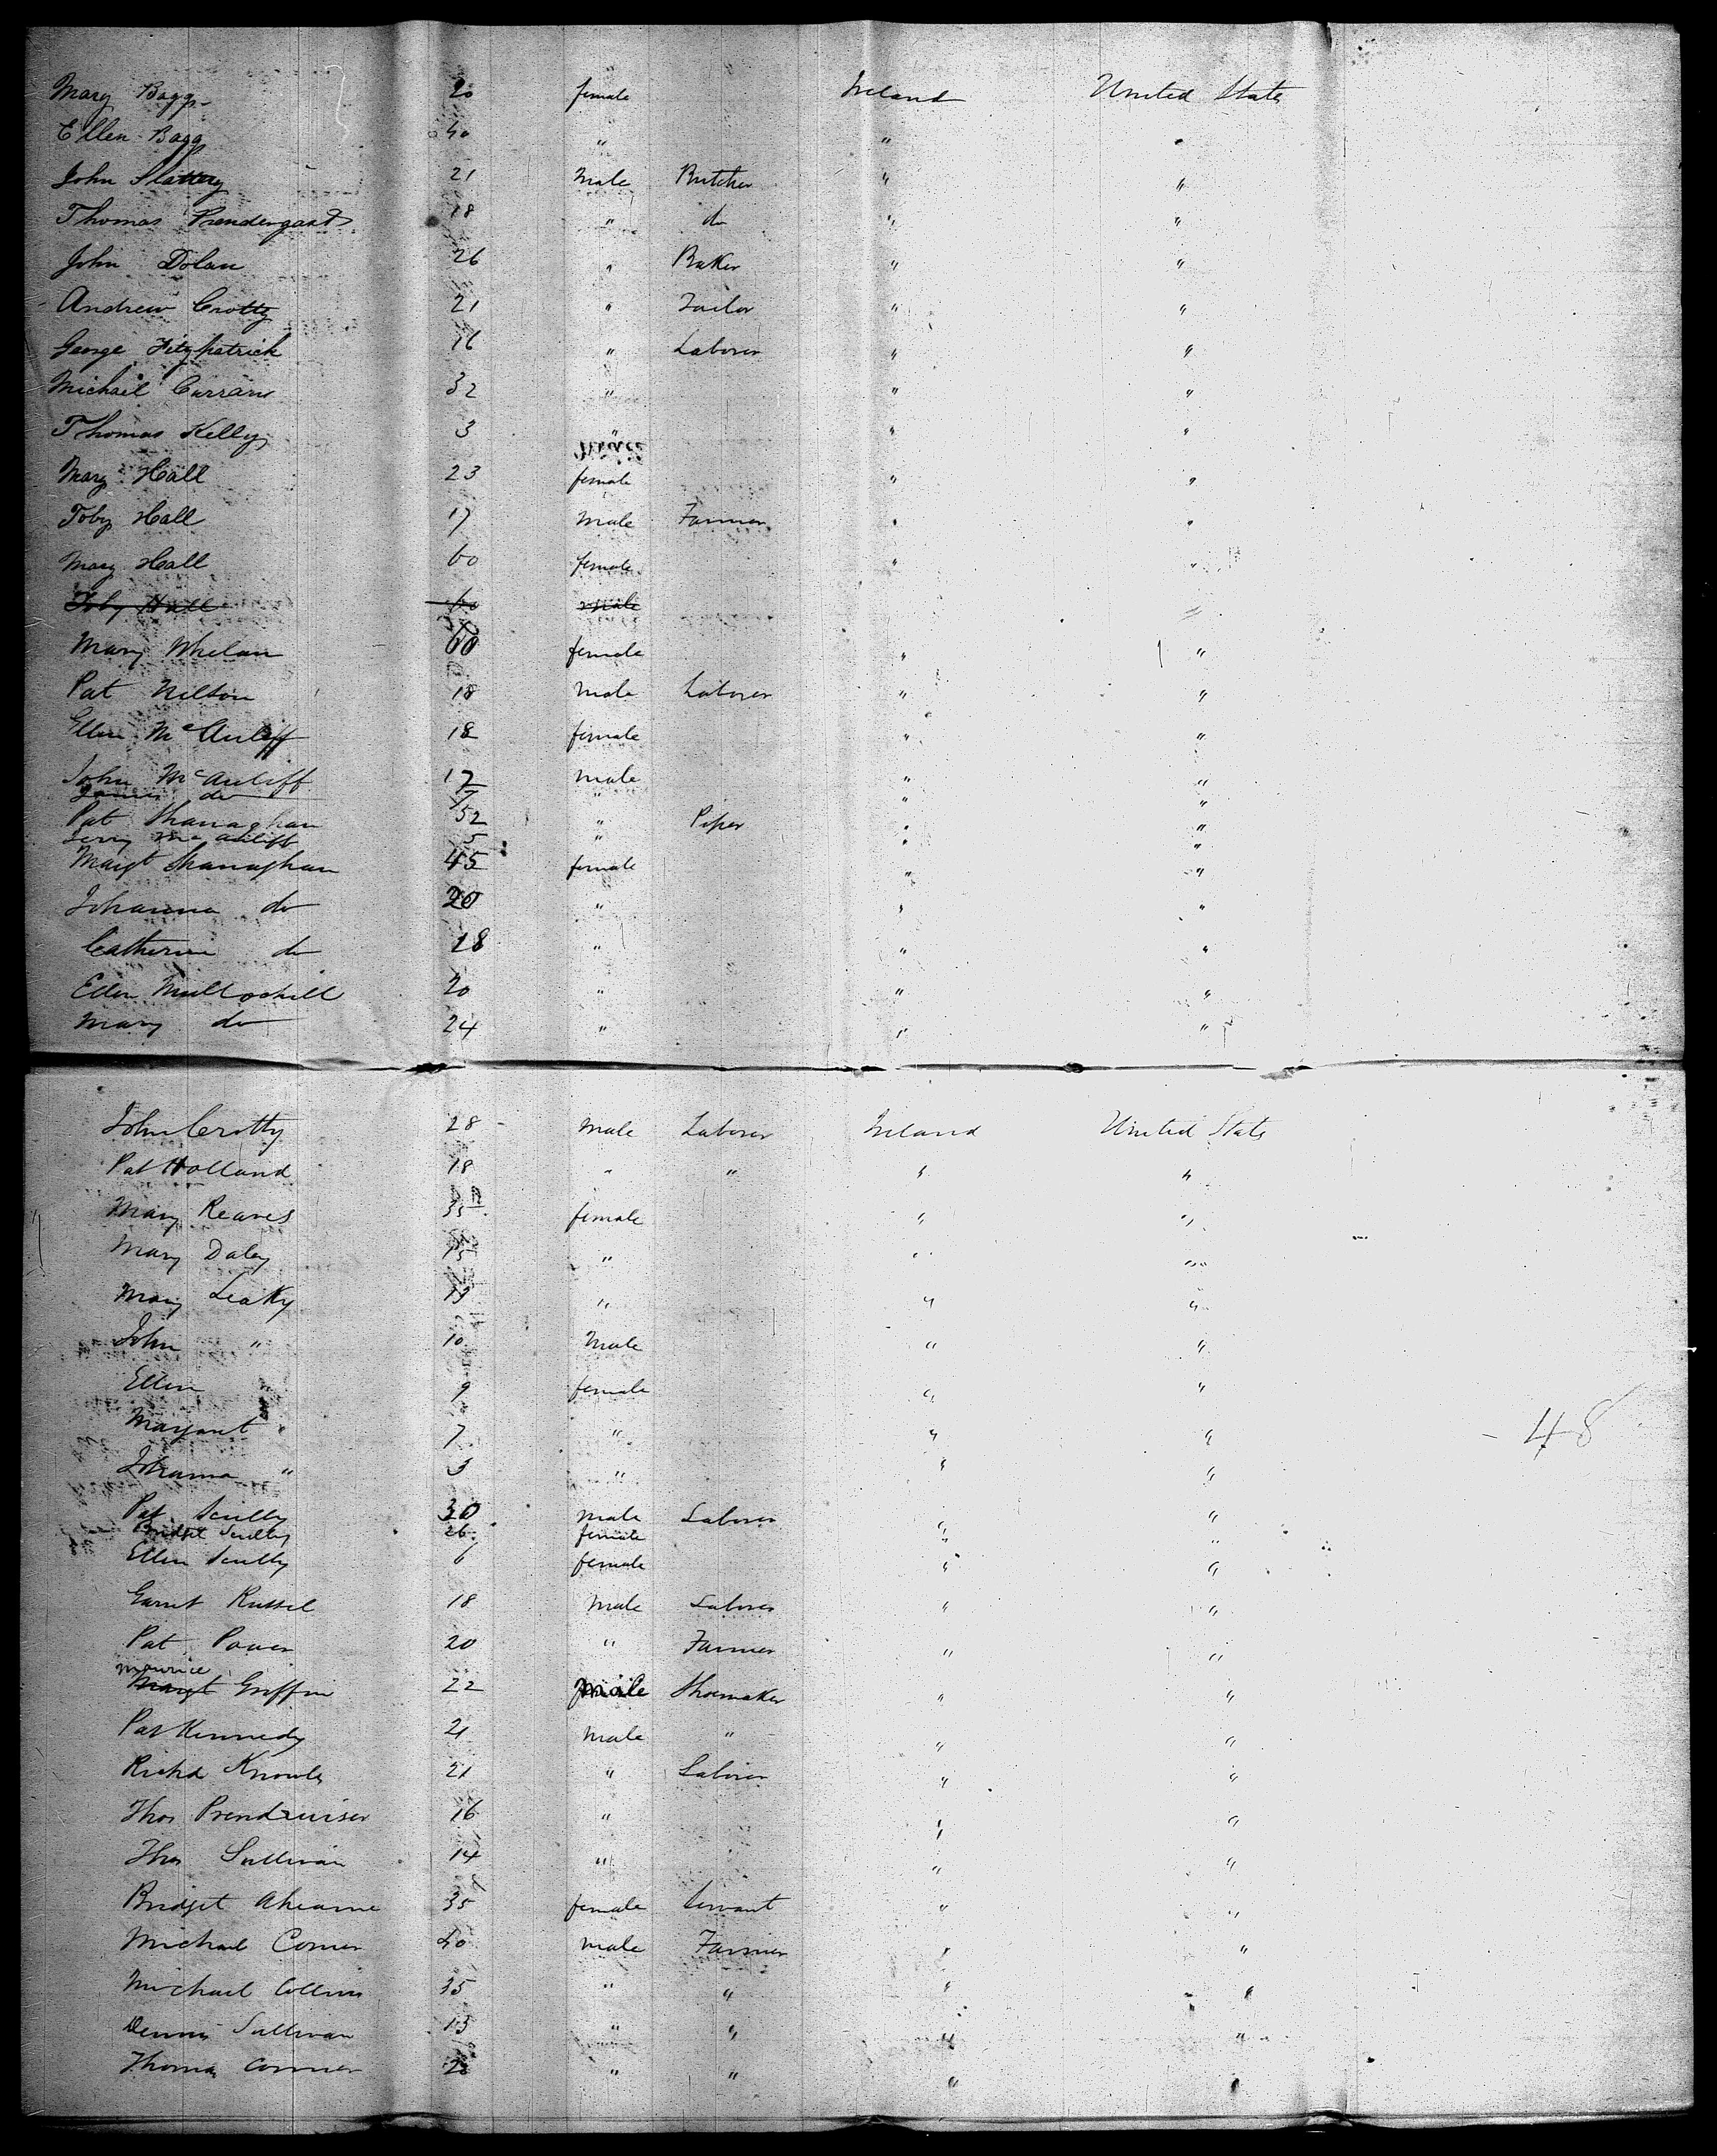 Mary Bagg 20 female Ireland United States
Ellen Bagg 40 " " "
John Slattery 21 Male Butcher " "
Thomas Prendergast 18 " do " "
John Dolan 26 " Baker " "
Andrew Crotty 21 " Tailor " "
George Fitzpatrick 16 " Laborer " "
Michael Curran 32 " " "
Thomas Kelly 3 " " "
Mary Hall 23 female " "
Toby Hall 17 Male Farmer " "
Mary Hall 60 female " "
Toby Hall 60 male "
Mary Whelan 60 female " "
Pat Nelson 18 Male Laborer " "
Ellen McAuliff 18 female " "
John McAuliff 17 male " "
James do 7 " " "
Pat Shanaghan 52 " Piper " "
Jerry McAuliff 5 " " "
Margt Shanaghan 45 female " "
Johanna do 20 " " "
Catherine do 18 " " "
Ellen 20 " " "
Mary do 24 " " "
John Crotty 28 Male Laborer Ireland United States
Pat Holland 18 " " " "
Mary Reaves 35 female " "
Mary Daley 15 " " "
Mary Leaky 13 " " "
John " 10 Male " "
Ellen " 9 female " "
Margaret " 7 " " "
- 48
Johanna " 3 " " "
Pat Scully 30 male Laborer " "
Bridget Scully 26 female " "
Ellen Scully 6 female " "
Garret Russel 18 Male Laborer " "
Pat Power 20 " Farmer " "
Maurice
Margt Griffin 22 male Shoemaker " "
Pat Kennedy 21 Male " " "
Richd Knowls 21 " Laborer " "
Thos 16 " " "
Thos Sullivan 14 " " "
Bridget Ahearne 35 female Servant " "
Michael 40 male Farmer " "
Michael Collins 35 " " " "
Dennis Sullivan 15 " " " "
Thomas 20 " " " "